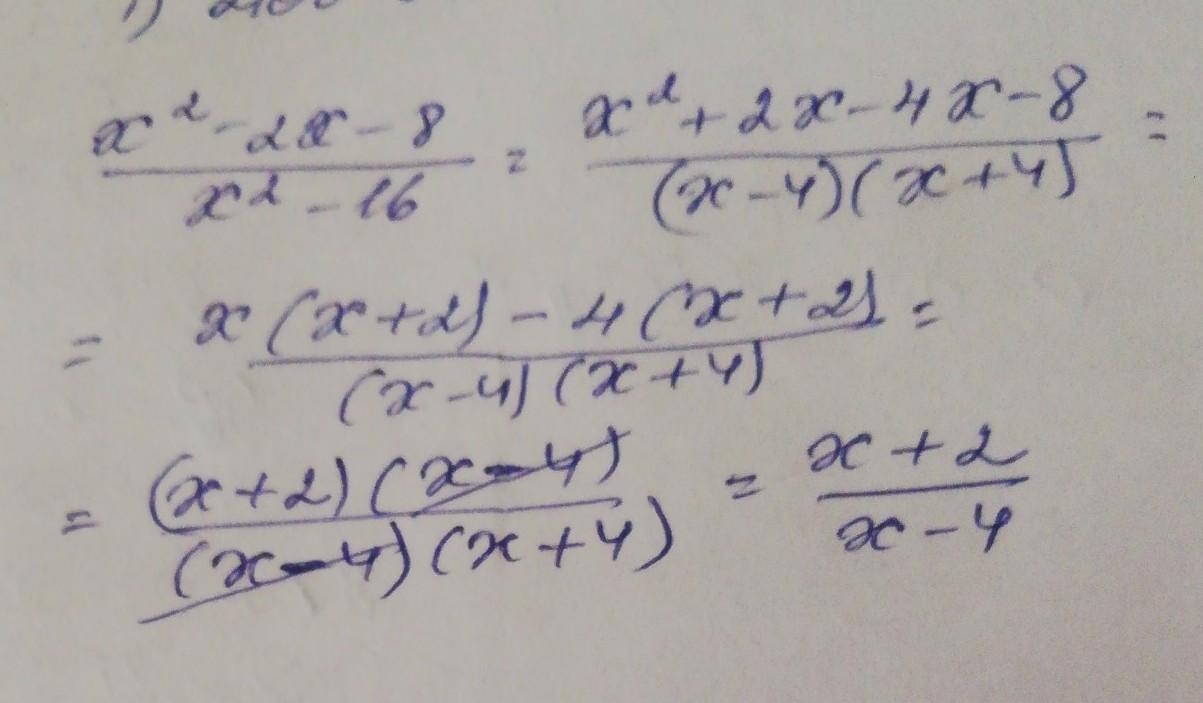 1)
x² - 2x - 8 / x² - 16 = x² + 2x - 4x - 8 / (x - 4)(x + 4) =
= x(x + 2) - 4(x + 2) / (x - 4)(x + 4) =
= (x + 2)(x - 4) / (x - 4)(x + 4) = x + 2 / x - 4